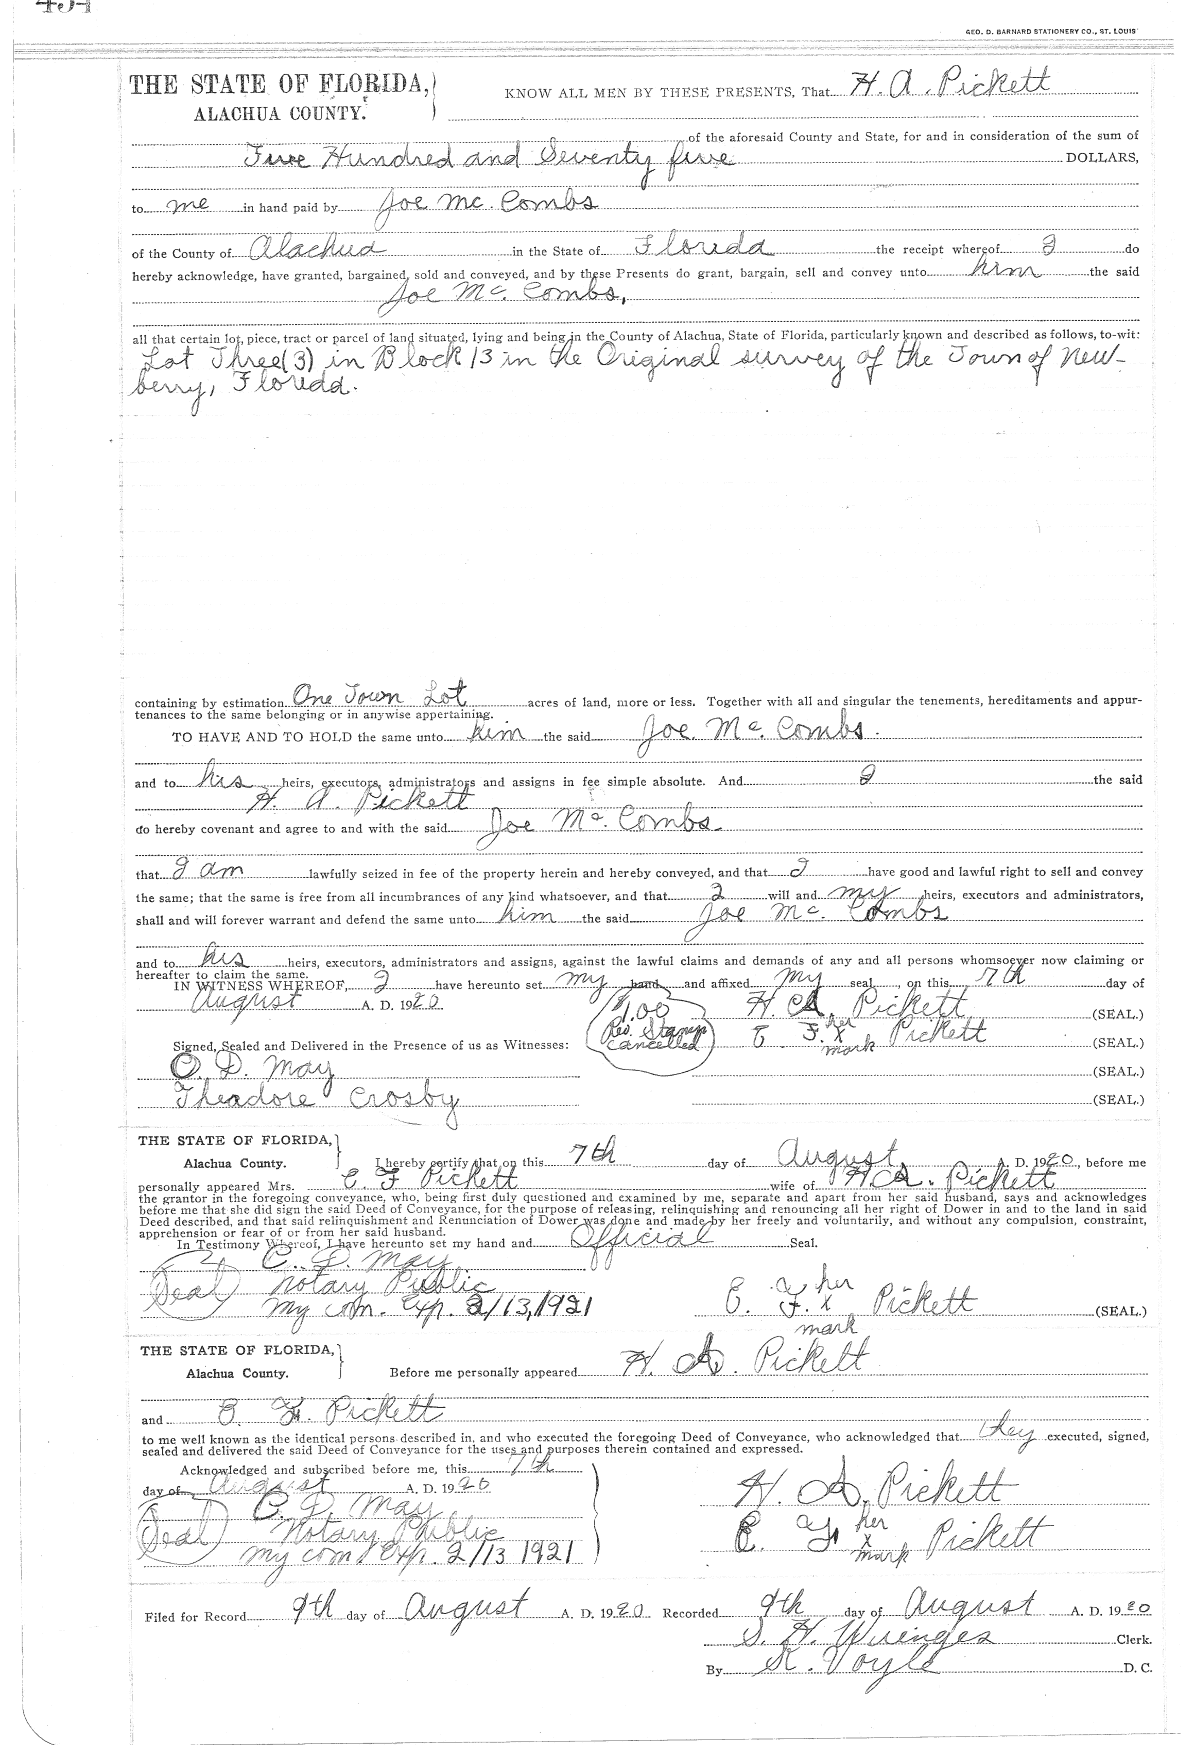 GEO. D. BARNARD STATIONERY CO., ST. LOUIS
THE STATE OF FLORIDA,
ALACHUA COUNTY.
KNOW ALL MEN BY THESE PRESENTS, That H. A. Pickett
of the aforesaid County and State, for and in consideration of the sum of
Hundred and Seventy five DOLLARS,
to me in hand paid by Joe Mc. Combs
of the County of Alachua in the State of Florida the receipt whereof I do
hereby acknowledge, have granted, bargained, sold and conveyed, and by these Presents do grant, bargain, sell and convey unto him the said
Joe Mc. Combs,
all that certain lot, piece, tract or parcel of land situated, lying and being in the County of Alachua, State of Florida, particularly known and described as follows, to-wit:
Lot Three (3) in Block 13 in the Original survey of the Town of New-
berry, Florida.
containing by estimation One Town Lot acres of land, more or less. Together with all and singular the tenements, hereditaments and appur-
tenances to the same belonging or in anywise appertaining.
TO HAVE AND TO HOLD the same unto him the said Joe Mc. Combs.
and to his heirs, executors, administrators and assigns in fee simple absolute. And I the said
H. A. Pickett
do hereby covenant and agree to and with the said Joe Mc. Combs.
that I am lawfully seized in fee of the property herein and hereby conveyed, and that I have good and lawful right to sell and convey
the same; that the same is free from all incumbrances of any kind whatsoever, and that I will and my heirs, executors and administrators,
shall and will forever warrant and defend the same unto him the said Joe Mc. Combs
and to his heirs, executors, administrators and assigns, against the lawful claims and demands of any and all persons whomsoever now claiming or
hereafter to claim the same.
IN WITNESS WHEREOF, I have hereunto set my hand and affixed my seal, on this 7th day of
August A. D. 1920
$1.00
Rev. Stamp
Cancelled
H. A. Pickett (SEAL.)
E. F. her x mark Pickett (SEAL.)
Signed, Sealed and Delivered in the Presence of us as Witnesses:
C. D. May (SEAL.)
Theadore Crosby (SEAL.)
THE STATE OF FLORIDA,
Alachua County. I hereby certify that on this 7th day of August A. D. 1920, before me
personally appeared Mrs. E F Pickett wife of H A. Pickett
the grantor in the foregoing conveyance, who, being first duly questioned and examined by me, separate and apart from her said husband, says and acknowledges
before me that she did sign the said Deed of Conveyance, for the purpose of releasing, relinquishing and renouncing all her right of Dower in and to the land in said
Deed described, and that said relinquishment and Renunciation of Dower was done and made by her freely and voluntarily, and without any compulsion, constraint,
apprehension or fear of or from her said husband.
In Testimony Whereof, I have hereunto set my hand and Official Seal.
C. D. May
Seal Notary Public
My com. Exp. 2/13, 1921
E. F. her x mark Pickett (SEAL.)
THE STATE OF FLORIDA,
Alachua County. Before me personally appeared H. A. Pickett
and E. F. Pickett
to me well known as the identical persons described in, and who executed the foregoing Deed of Conveyance, who acknowledged that they executed, signed,
sealed and delivered the said Deed of Conveyance for the uses and purposes therein contained and expressed.
Acknowledged and subscribed before me, this 7th
day of August A. D. 1920
C. D. May
Seal Notary Public
My com Exp. 2/13 1921
H. A. Pickett
E. F. her x mark Pickett
Filed for Record 9th day of August A. D. 1920 Recorded 9th day of August A. D. 1920
S. H. Wienges Clerk.
By K. Voyle D. C.